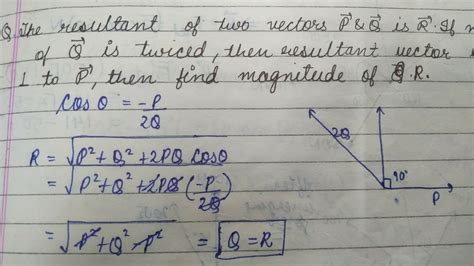 Q. The resultant of two vectors P⃗ & Q⃗ is R⃗. If
of Q⃗ is twiced, then resultant vector
⊥ to P⃗, then find magnitude of R.
cos θ = -P/2Q
R = √P² + Q² + 2PQ cosθ
= √P² + Q² + 2PQ (-P/2Q)
= √P² + Q² - P² = Q = R
2Q
90°
P